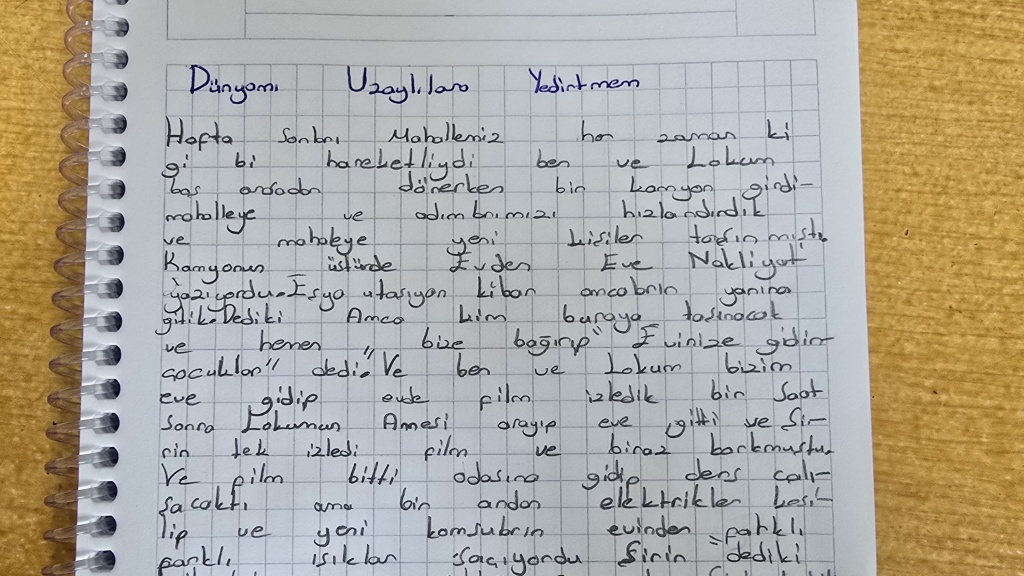 Dünyamı Uzaylılara Yedirtmem
Hafta Sonları Mahallemiz her zaman ki
gi bi hareketliydi ben ve Lokum
baş aradan dönerken bir kamyon girdi-
mahalleye ve adımlarımızı hızlandırdık
ve mahaleye yeni kişiler taşınmıştı.
Kamyonun üstünde Evden Eve Nakliyat
yazıyordu. Eşya utaşıyan kibar amcaların yanına
gitik. Dediki Amca kim buraya taşınacak
ve hemen "bize bağırıp" Evinize gidin
çocuklar" dedi. Ve ben ve Lokum bizim
eve gidip evde film izledik bir Saat
Sonra Lokumun Annesi arayıp eve gitti ve Şi-
rin tek izledi film ve biraz korkmuştu.
Ve film bitti odasına gidip ders çalı-
şacaktı ama bir andan elektrikler kesi-
lip ve yeni komşuların evinden farklı
farklı ışıklar saçıyordu Şirin dediki